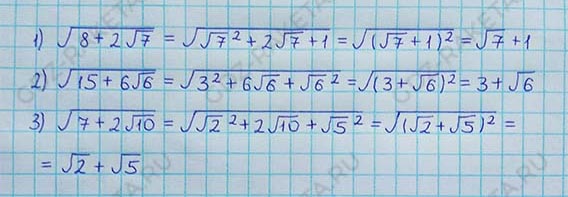 1) √(8 + 2√7) = √(√7² + 2√7 + 1) = √((√7 + 1)²) = √7 + 1
2) √(15 + 6√6) = √(3² + 6√6 + √6²) = √((3 + √6)²) = 3 + √6
3) √(7 + 2√10) = √(√2² + 2√10 + √5²) = √((√2 + √5)²) =
= √2 + √5